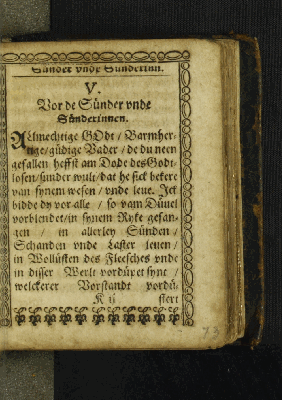 Sünder vnde Sünderinn.
V.
Vor de Sünder vnde
Sünderinnen.
ALmechtige GOdt / Barmher-
tige / güdige Vader / de du neen
gefallen heffst am Dode des Godt-
losen / sunder wult / dat he sick bekere
van synem wesen / vnde leue. Jck
bidde dy vor alle / so vam Düuel
vorblendet / in synem Ryke gefan-
gen / in allerley Sünden /
Schanden vnde Laster leuen /
in Wollüsten des Fleesches vnde
in disser Werlt vordüpet synt /
welckerer Vorstandt vordü-
K ij
stert
73